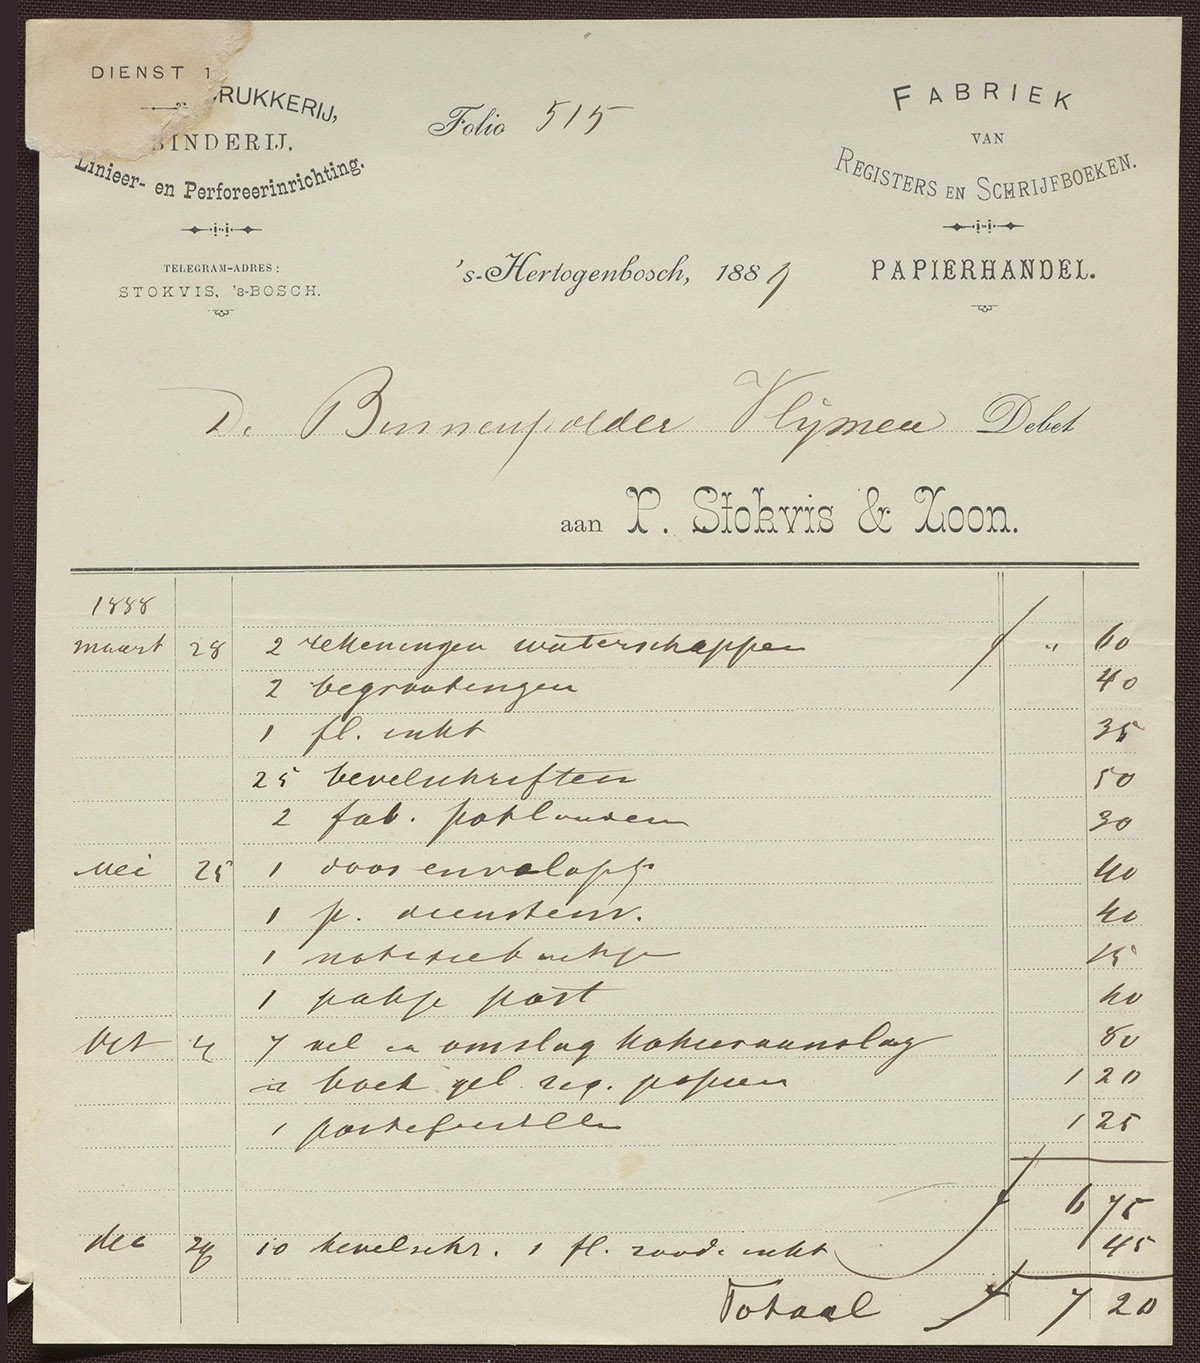 DIENST 1
RUKKERIJ,
BINDERIJ.
Linieer- en Perforeerinrichting.
TELEGRAM-ADRES:
STOKVIS, 's-BOSCH.
Folio 515
FABRIEK
VAN
REGISTERS EN SCHRIJFBOEKEN.
PAPIERHANDEL.
's-Hertogenbosch, 188
De Binnenpolder Vlijmen Debet
aan P. Stokvis & Zoon.
1888
maart 28 2 rekeningen waterschappen " 60
2 begrootingen 40
1 fl. inkt 35
25 bevelschriften 50
2 fab. potlooden 30
mei 25 1 doos envelopp. 40
1 p. dienstenv. 40
1 notitieboekje 15
1 pakje post 40
Oct 4 7 vel en omslag kohieraanslag 80
boek gel. reg. papier 1 20
1 portefeuille 1 25
6 75
dec 29 10 bevelschr. 1 fl. roode inkt 45
Totaal f 7 20